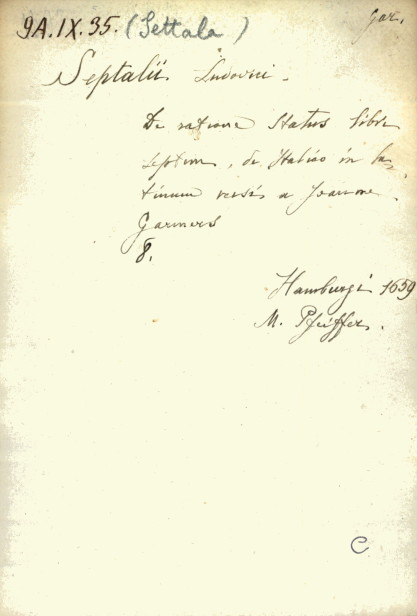 9A.IX.35. (Settala) Gar.
Septalii Ludovici.
De ratione Status libri
septem, de Italico in La-
tinum versis a Joanne
Garmers
8.
Hamburgi 1659
M. Pfeiffer.
C